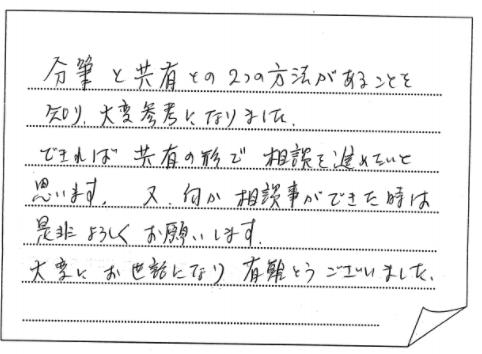 分筆と共有との2つの方法があることを
知り、大変参考になりました。
できれば共有の形で相談を進めたいと
思います。又、何か相談事ができた時は
是非よろしくお願いします。
大変にお世話になり有難とうございました。